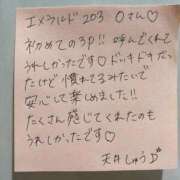 エメラルド203 Oさん♡
初めての3P!! 呼んでくれて
うれしかったです♡ドッキドキだっ
たけど慣れてるみたいで
安心して楽しめました!!
たくさん感じてくれたのも
うれしかったです♡
天井しゅう